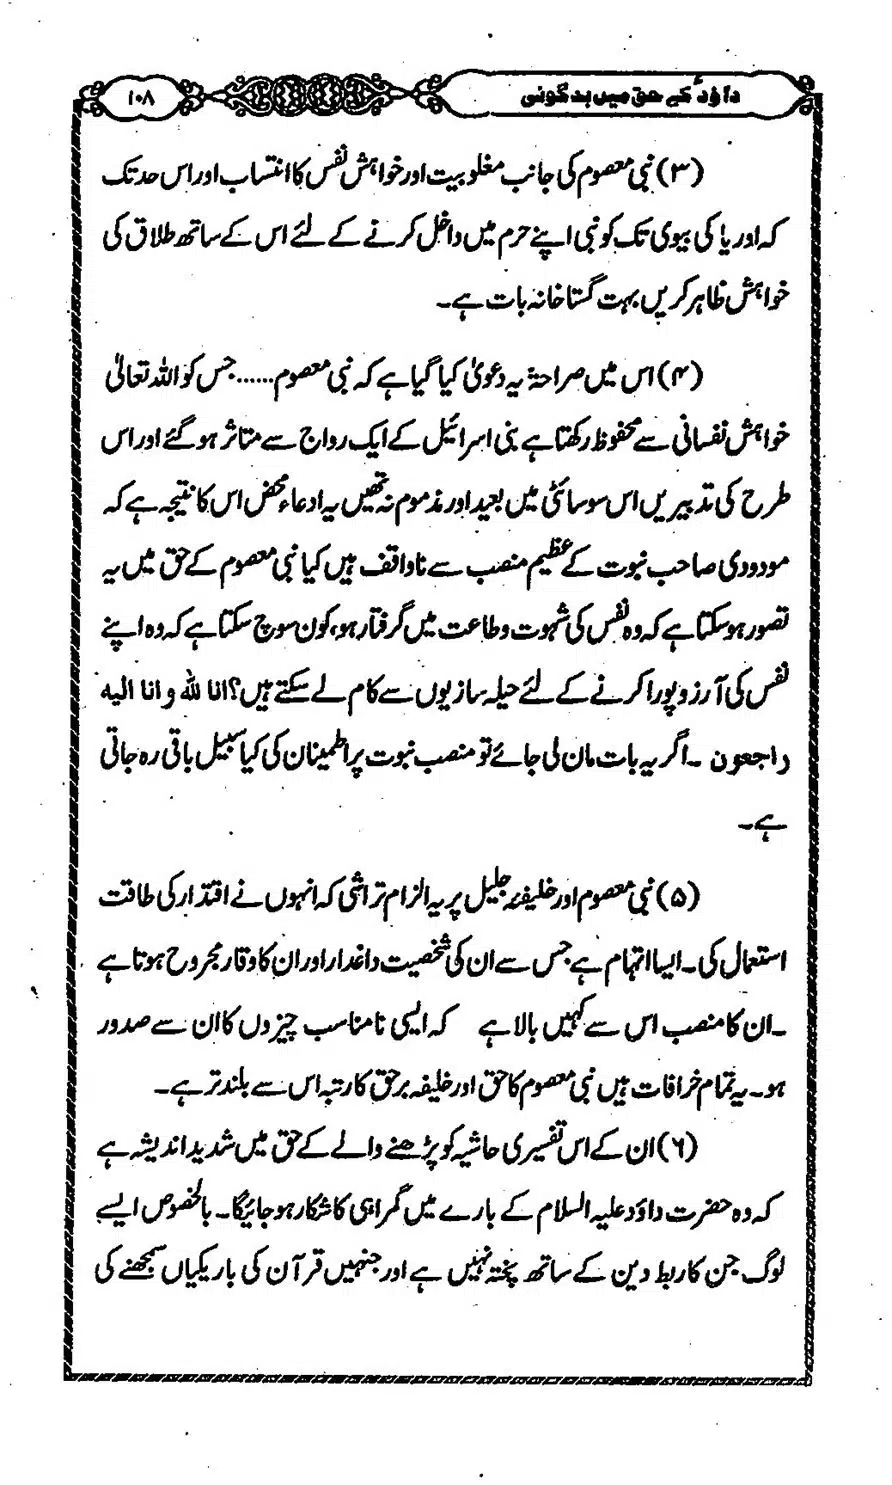 داؤدؑ کے حق میں بدگوئی
۱۰۸
(۳) نبی معصوم کی جانب مغلوبیت اور خواہش نفس کا انتساب اور اس حد تک
کہ اوریا کی بیوی تک کو نبی اپنے حرم میں داخل کرنے کے لئے اس کے ساتھ طلاق کی
خواہش ظاہر کریں بہت گستاخانہ بات ہے۔
(۴) اس میں صراحۃ یہ دعویٰ کیا گیا ہے کہ نبی معصوم......جس کو اللہ تعالیٰ
خواہش نفسانی سے محفوظ رکھتا ہے بنی اسرائیل کے ایک رواج سے متاثر ہو گئے اور اس
طرح کی تدبیریں اس سوسائٹی میں بعید اور مذموم نہ تھیں یہ ادعاء محض اس کا نتیجہ ہے کہ
مودودی صاحب نبوت کے عظیم منصب سے ناواقف ہیں کیا نبی معصوم کے حق میں یہ
تصور ہو سکتا ہے کہ وہ نفس کی شہوت و طاعت میں گرفتار ہو، کون سوچ سکتا ہے کہ وہ اپنے
نفس کی آرزو پورا کرنے کے لئے حیلہ سازیوں سے کام لے سکتے ہیں؟ انا للہ و انا الیہ
راجعون ۔اگر یہ بات مان لی جائے تو منصب نبوت پر اطمینان کی کیا سبیل باقی رہ جاتی
ہے۔
(۵) نبی معصوم اور خلیفۂ جلیل پر یہ الزام تراشی کہ انہوں نے اقتدار کی طاقت
استعمال کی۔ ایسا اتہام ہے جس سے ان کی شخصیت داغدار اور ان کا وقار مجروح ہوتا ہے
۔ان کا منصب اس سے کہیں بالا ہے کہ ایسی نامناسب چیزوں کا ان سے صدور
ہو۔ یہ تمام خرافات ہیں نبی معصوم کا حق اور خلیفہ برحق کا رتبہ اس سے بلند تر ہے۔
(۶) ان کے اس تفسیری حاشیہ کو پڑھنے والے کے حق میں شدید اندیشہ ہے
کہ وہ حضرت داؤد علیہ السلام کے بارے میں گمراہی کا شکار ہو جائیگا۔ بالخصوص ایسے
لوگ جن کا ربط دین کے ساتھ پختہ نہیں ہے اور جنہیں قرآن کی باریکیاں سمجھنے کی